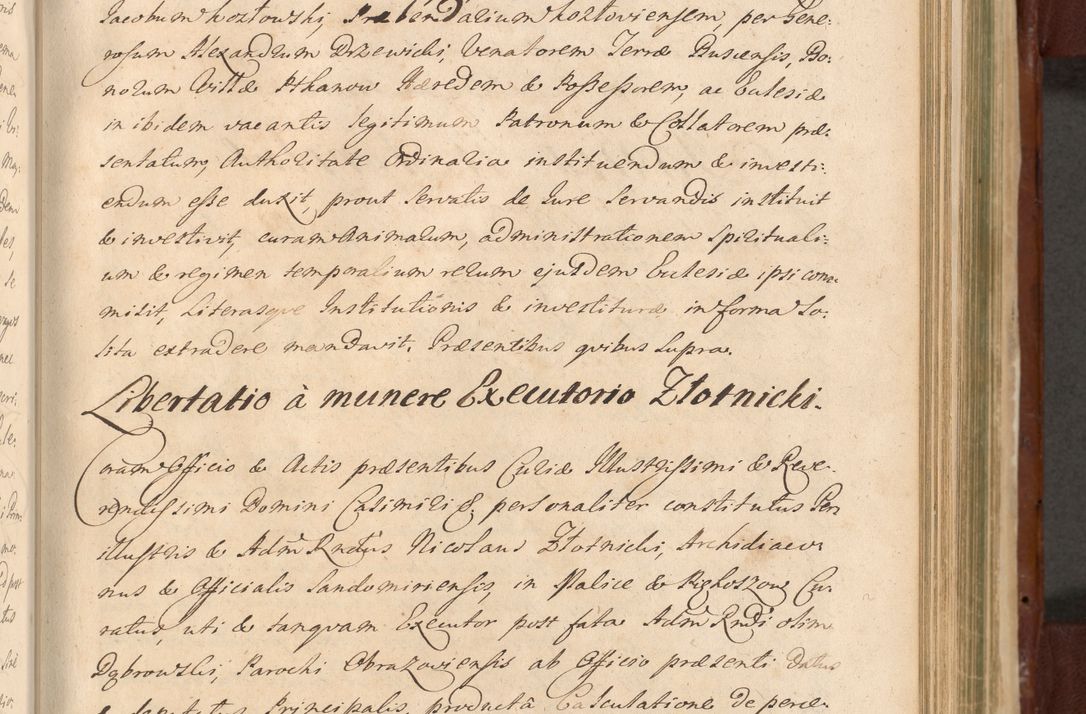 Jacobum Kozłowski, Prebendarium Kozłoviensem, per Gene-
rosum Alexandrum Drzewicki, Venatorem Terræ Buscensis, Bo-
norum Villæ Pkanow Hæredem & Possessorem, ac Eclesiæ
in ibidem vacantis legitimum Patronum & Collatorem præ-
sentatum, Authoritate Ordinaria instituendum & investi-
endum esse duxit, prout servatis de Iure servandis instituit
& investivit, curam Animarum, administrationem Spirituali-
um & regimen temporalium rerum ejusdem Eclesiæ ipsi com-
misit, Literasque Institutionis & investituræ in forma So-
lita extradere mandavit. Præsentibus quibus supra.
Libertatio à munere Executorio Złotnicki.
Coram Officio & Actis præsentibus Curiæ Illustrissimi & Reve-
rendissimi Domini Casimiri &. personaliter constitutus Per
illustris & Adm Rndus Nicolaus Złotnicki, Archidiaco-
nus & Officialis Sandomiriensis, in Malice & Rzchoszow Cu-
ratus, uti & tanquam Executor post fata Adm Rndi olim
Dąbrowski, Parochi Obrazoviensis ab Officio præsenti datus
& deputatus Principalis, productâ Calculatione de perce-